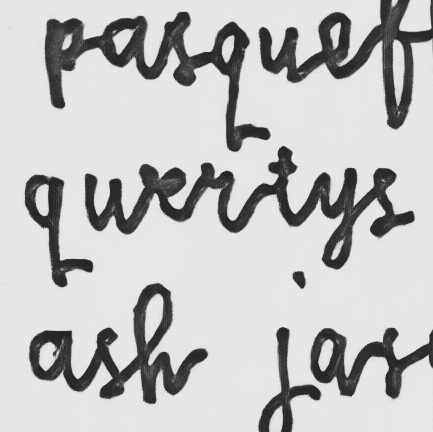 pasquef
qwertys
ash jas